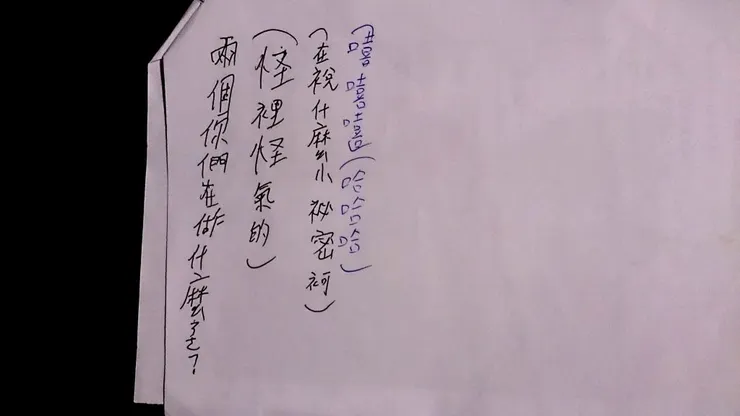 兩個你們在做什麼?
(怪裡怪氣的)
(在說什麼小祕密袔)
(嘻嘻嘻(哈哈哈)